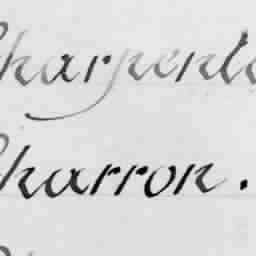 Charpente
Charron.